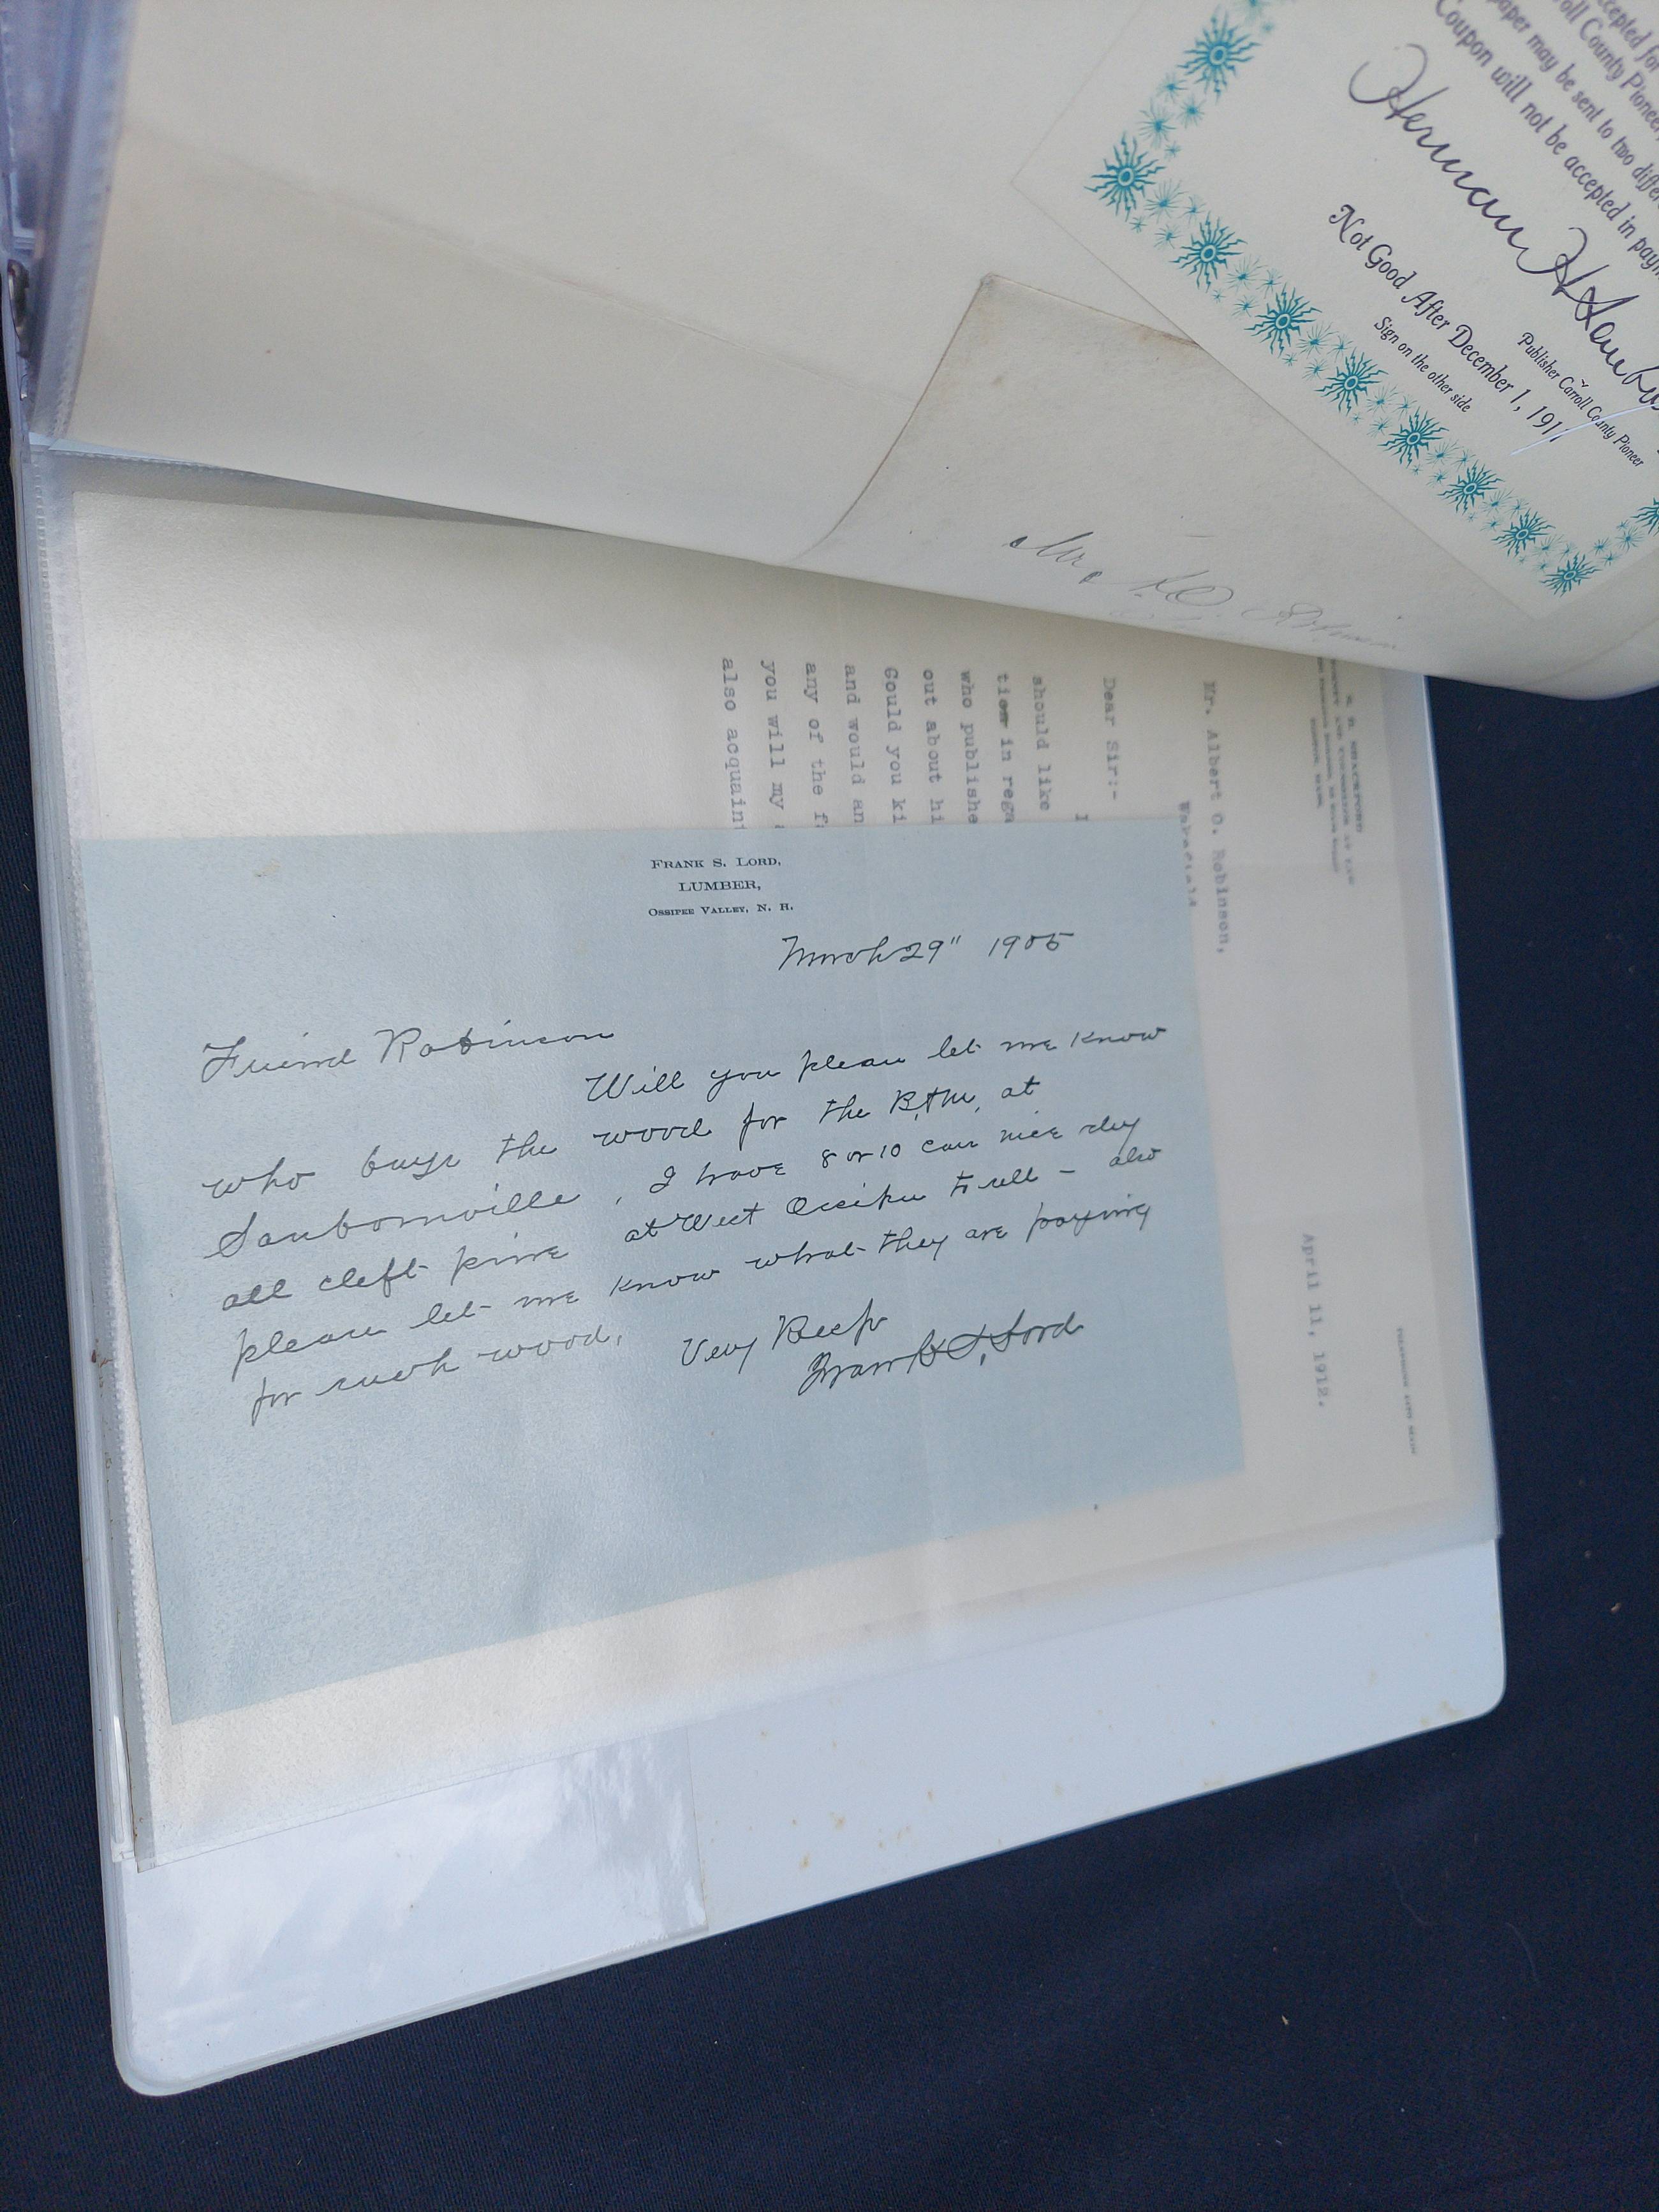 ccepted for
oll County Pioneer
paper may be sent to two differ
Coupon will not be accepted in paym
Herman H
Publisher Carroll County Pioneer
Not Good After December 1, 191
Sign on the other side
Mr.
Mr. Albert O. Robinson,
Wakefield
April 11, 1912.
Dear Sir:-
I
should like
tion in rega
who publishe
out about hi
Could you ki
and would an
any of the f
you will my
also acquaint
FRANK S. LORD,
LUMBER,
OSSIPEE VALLEY, N. H.
March 29" 1905
Friend Robinson
Will you please let me know
who buys the wood for the B,&M, at
Sanbornville, I have 8 or 10 cars nice dry
all cleft pine at West Ossipee to sell - also
please let me know what they are paying
for such wood,
Very Resp
Frank S, Lord